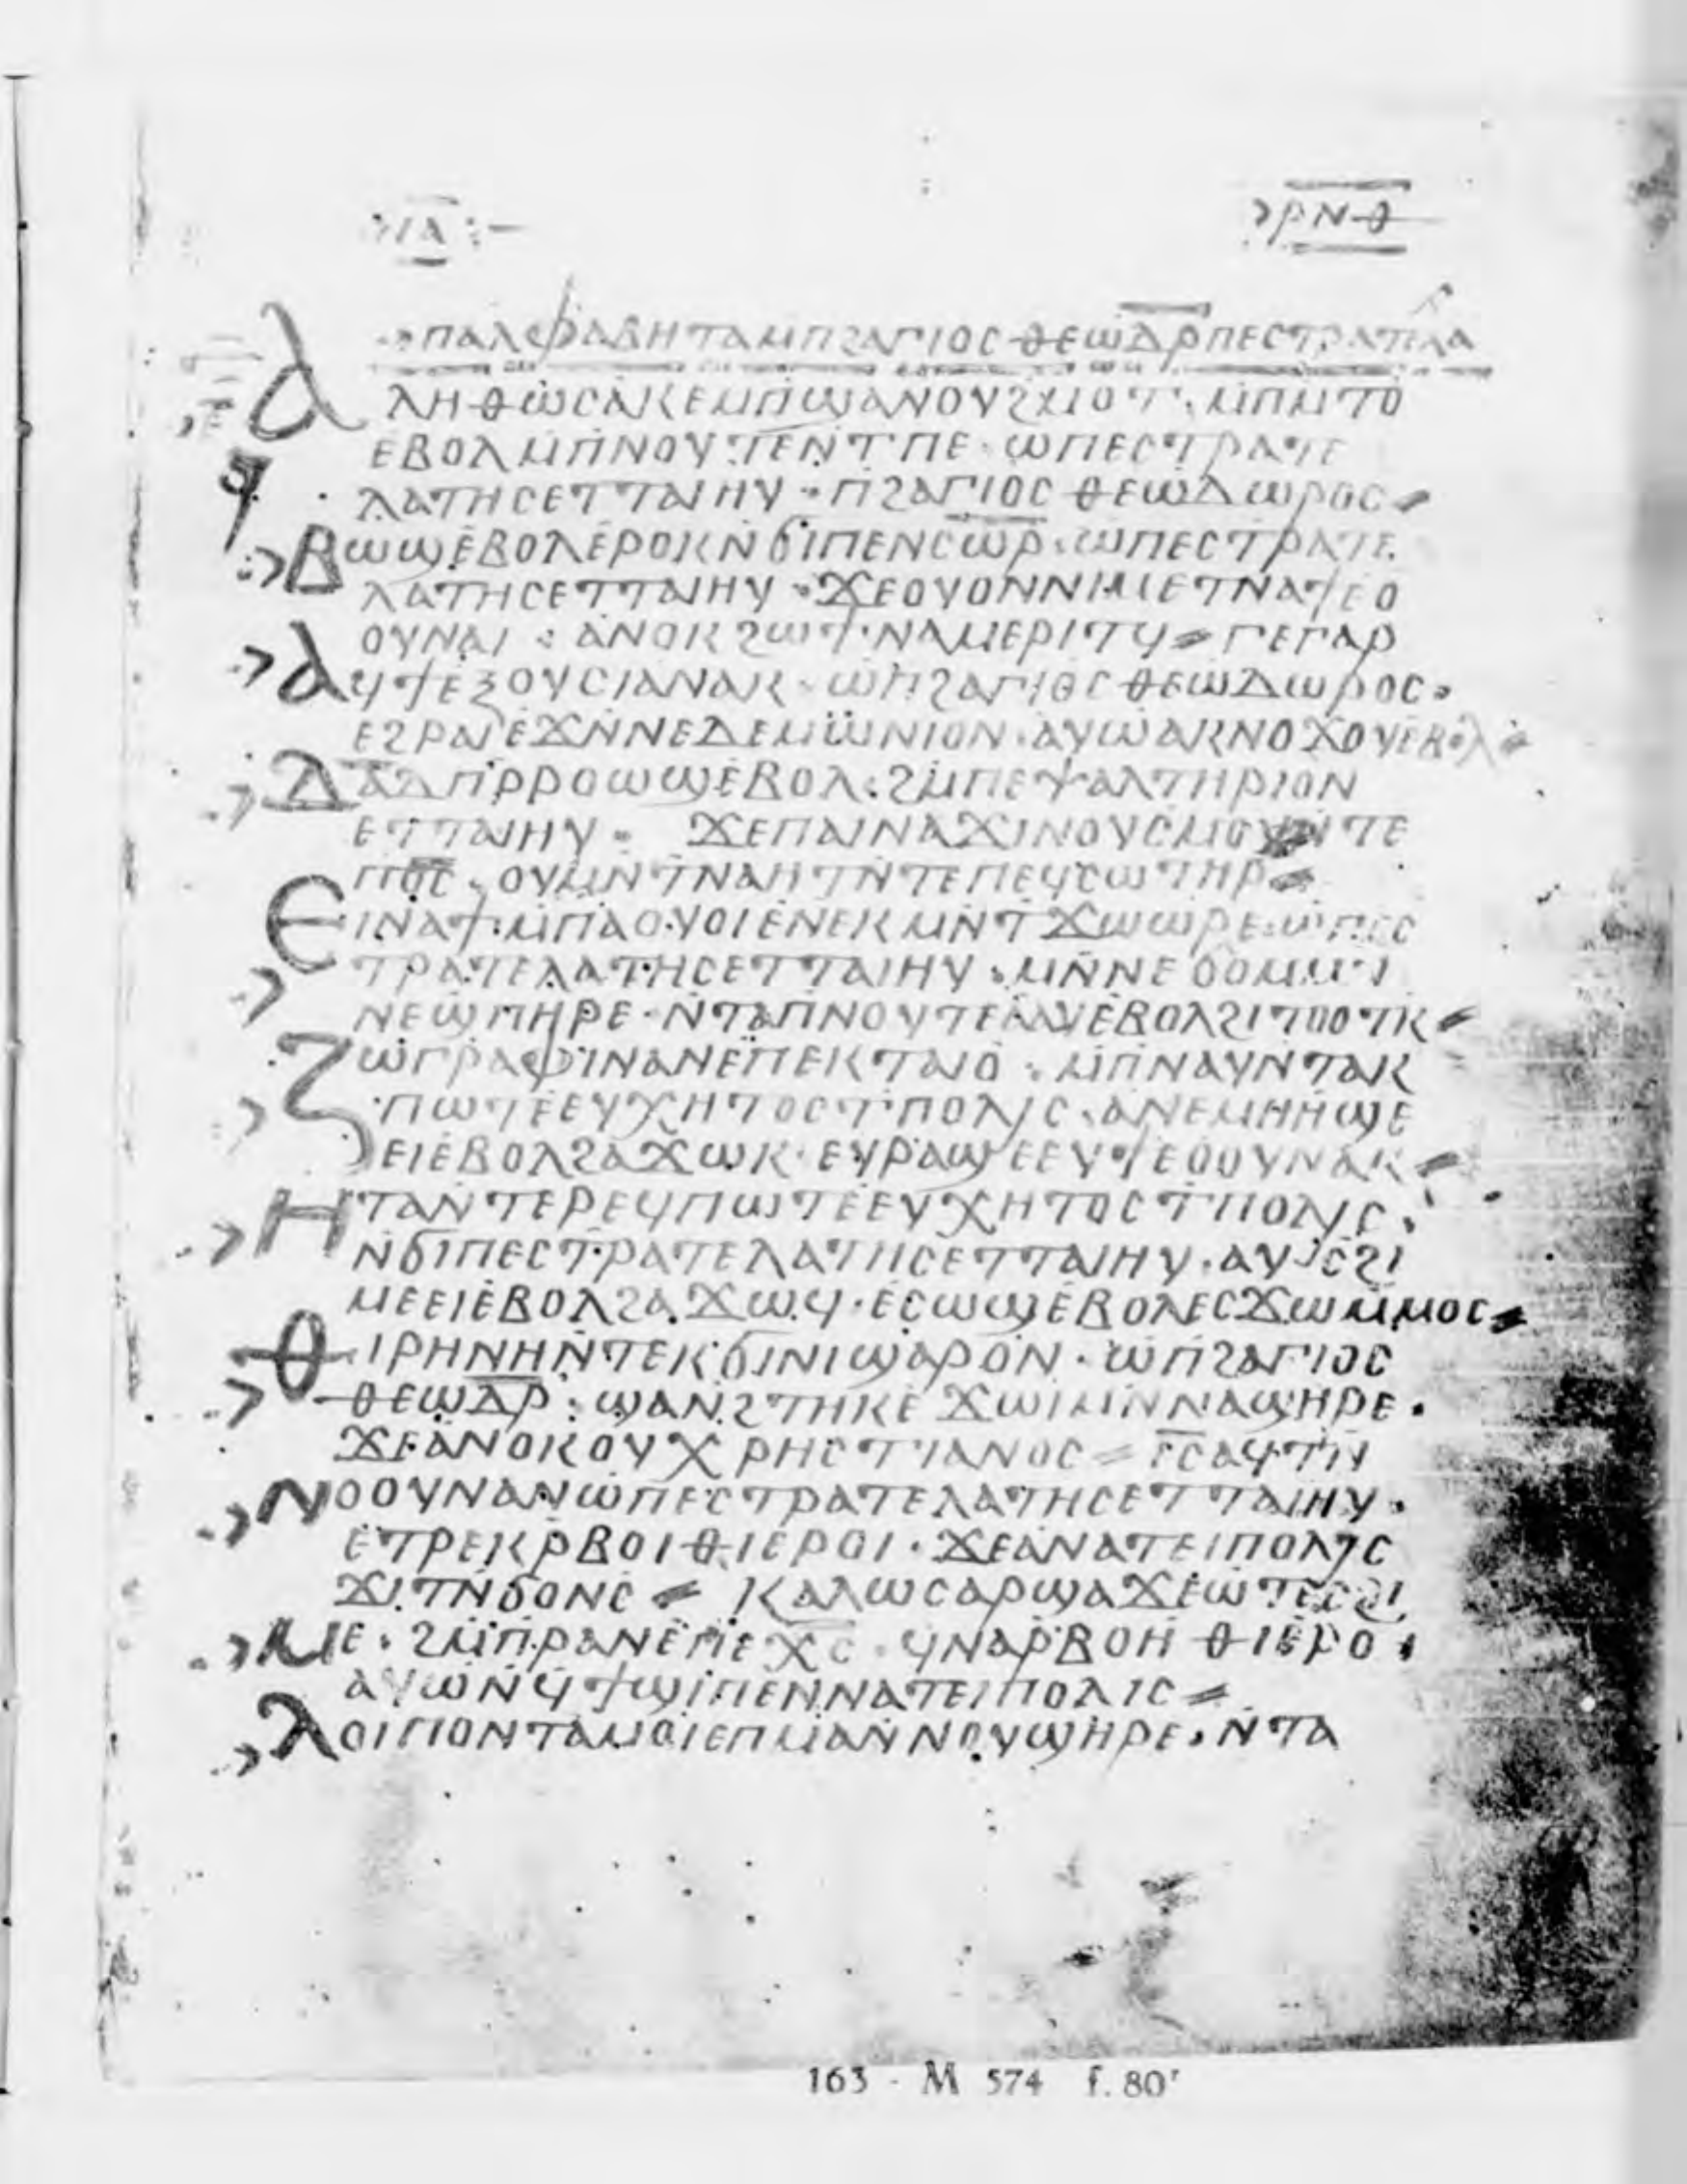 ⲓⲁ ⲣⲛⲑ
ⲡⲁⲗⲫⲁⲃⲏⲧⲁ ⲙⲡϩⲁⲅⲓⲟⲥ ⲑⲉⲱⲇⲣ ⲡⲉⲥⲧⲣⲁⲧⲉⲗⲁ
ⲁⲗⲏⲑⲱⲥ ⲁⲕⲉⲙⲡϣⲁ ⲛⲟⲩϩⲙⲟⲧ· ⲙⲡⲙⲧⲟ
ⲉⲃⲟⲗ ⲙⲡⲛⲟⲩⲧⲉ ⲛⲧⲡⲉ· ⲱ ⲡⲉⲥⲧⲣⲁⲧⲉ
ⲗⲁⲧⲏⲥ ⲉⲧⲧⲁⲓⲏⲩ· ⲡϩⲁⲅⲓⲟⲥ ⲑⲉⲱⲇⲱⲣⲟⲥ
ⲃⲱϣ ⲉⲃⲟⲗ ⲉⲣⲟⲕ ⲛϭⲓ ⲡⲉⲛⲥⲱⲣ· ⲱ ⲡⲉⲥⲧⲣⲁⲧⲉ
ⲗⲁⲧⲏⲥ ⲉⲧⲧⲁⲓⲏⲩ· ϫⲉ ⲟⲩⲟⲛ ⲛⲓⲙ ⲉⲧⲛⲁϯⲉⲟ
ⲟⲩ ⲛⲁⲓ· ⲁⲛⲟⲕ ϩⲱ ϯⲛⲁⲙⲉⲣⲓⲧϥ ⲅⲉ ⲅⲁⲣ
ⲁϥϯⲉⲝⲟⲩⲥⲓⲁ ⲛⲁⲕ· ⲱ ⲡϩⲁⲅⲓⲟⲥ ⲑⲉⲱⲇⲱⲣⲟⲥ·
ⲉϩⲣⲁⲓ ⲉϫⲛ ⲛⲉⲇⲉⲙⲱⲛⲓⲟⲛ· ⲁⲩⲱ ⲁⲕⲛⲟϫⲟⲩ ⲉⲃⲟⲗ
ⲇⲁⲇ ⲡⲣⲣⲟ ⲱϣ ⲉⲃⲟⲗ· ϩⲙ ⲡⲉⲯⲁⲗⲧⲏⲣⲓⲟⲛ
ⲉⲧⲧⲁⲓⲏⲩ· ϫⲉ ⲡⲁⲓ ⲛⲁϫⲓ ⲛⲟⲩⲥⲙⲟⲩ ⲛⲧⲉ
ⲡϭⲥ· ⲟⲩⲙⲛⲧⲛⲁⲏⲧ ⲛⲧⲉ ⲡⲉϥⲥⲱⲧⲏⲣ
ⲉⲓⲛⲁϯ ⲙⲡⲁⲟⲩⲟⲓ ⲉⲛⲉⲕⲙⲛⲧϫⲱⲱⲣⲉ· ⲱ ⲡⲉⲥ
ⲧⲣⲁⲧⲉⲗⲁⲧⲏⲥ ⲉⲧⲧⲁⲓⲏⲩ· ⲙⲛ ⲛⲉϭⲟⲙ ⲙⲛ
ⲛⲉϣⲡⲏⲣⲉ· ⲛⲧⲁ ⲡⲛⲟⲩⲧⲉ ⲁⲁⲩ ⲉⲃⲟⲗ ϩⲓⲧⲟⲟⲧⲕ
ⲍⲱⲅⲣⲁⲫⲓⲛ ⲁⲛ ⲉⲡⲉⲕⲧⲁⲓⲟ· ⲙⲡⲛⲁⲩ ⲛⲧⲁⲕ
ⲡⲱⲧ ⲉⲉⲩⲭⲏⲧⲟⲥ ⲧⲡⲟⲗⲓⲥ· ⲁ ⲛⲉⲙⲏⲏϣⲉ
ⲉⲓ ⲉⲃⲟⲗ ϩⲁϫⲱⲕ· ⲉⲩⲣⲁϣⲉ ⲉⲩϯⲉⲟⲟⲩ ⲛⲁⲕ
ⲏⲧⲁⲛ ⲧⲉⲣⲉϥⲡⲱⲧ ⲉⲉⲩⲭⲏⲧⲟⲥ ⲧⲡⲟⲗⲓⲥ·
ⲛϭⲓ ⲡⲉⲥⲧⲣⲁⲧⲉⲗⲁⲧⲏⲥ ⲉⲧⲧⲁⲓⲏⲩ· ⲁⲩⲥϩⲓ
ⲙⲉ ⲉⲓ ⲉⲃⲟⲗ ϩⲁϫⲱϥ· ⲉⲥⲱϣ ⲉⲃⲟⲗ ⲉⲥϫⲱ ⲙⲙⲟⲥ
ⲑⲓⲣⲏⲛⲏ ⲛⲧⲉⲕϭⲓⲛⲓ ϣⲁⲣⲟⲛ· ⲱ ⲡϩⲁⲅⲓⲟⲥ
ⲑⲉⲱⲇⲣ· ϣⲁⲛϩⲧⲏⲕ ⲉϫⲱⲓ ⲙⲛ ⲛⲁϣⲏⲣⲉ·
ϫⲉ ⲁⲛⲟⲕ ⲟⲩⲭⲣⲏⲥⲧⲓⲁⲛⲟⲥ ⲓⲥ ⲁϥⲧⲛ
ⲛⲟⲟⲩ ⲛⲁⲛ ⲱ ⲡⲉⲥⲧⲣⲁⲧⲉⲗⲁⲧⲏⲥ ⲉⲧⲧⲁⲓⲏⲩ·
ⲉⲧⲣⲉⲕⲣⲃⲟⲓⲑⲓ ⲉⲣⲟⲓ· ϫⲉ ⲁ ⲛⲁ ⲧⲉⲓⲡⲟⲗⲓⲥ
ϫⲓⲧⲛ ϭⲟⲛⲥ ⲕⲁⲗⲱⲥ ⲁⲣϣⲁϫⲉ ⲱ ⲧⲉⲥϩⲓ
ⲙⲉ· ϩⲙ ⲡⲣⲁⲛ ⲉⲡⲉⲭⲥ· ϥⲛⲁⲣⲃⲟⲏⲑⲓ ⲉⲣⲟ·
ⲁⲩⲱ ⲛϥϯϣⲓⲡⲉ ⲛⲛⲁ ⲧⲉⲓⲡⲟⲗⲓⲥ
ⲗⲟⲓⲡⲟⲛ ⲧⲁⲙⲟⲓ ⲉⲡⲙⲁ ⲛⲛⲟⲩϣⲏⲣⲉ· ⲛⲧⲁ
163 - M 574 f. 80r